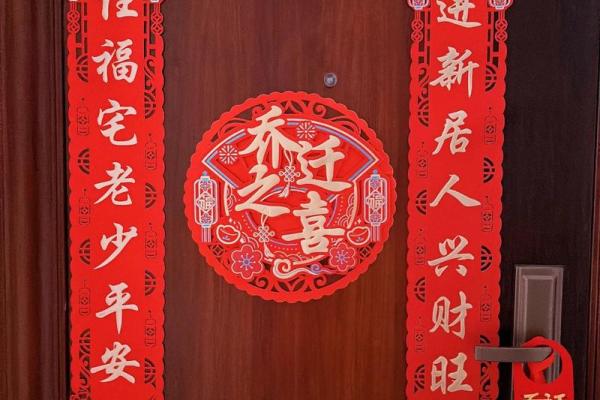 进新居人兴财旺
乔迁之喜
住福宅老少平安